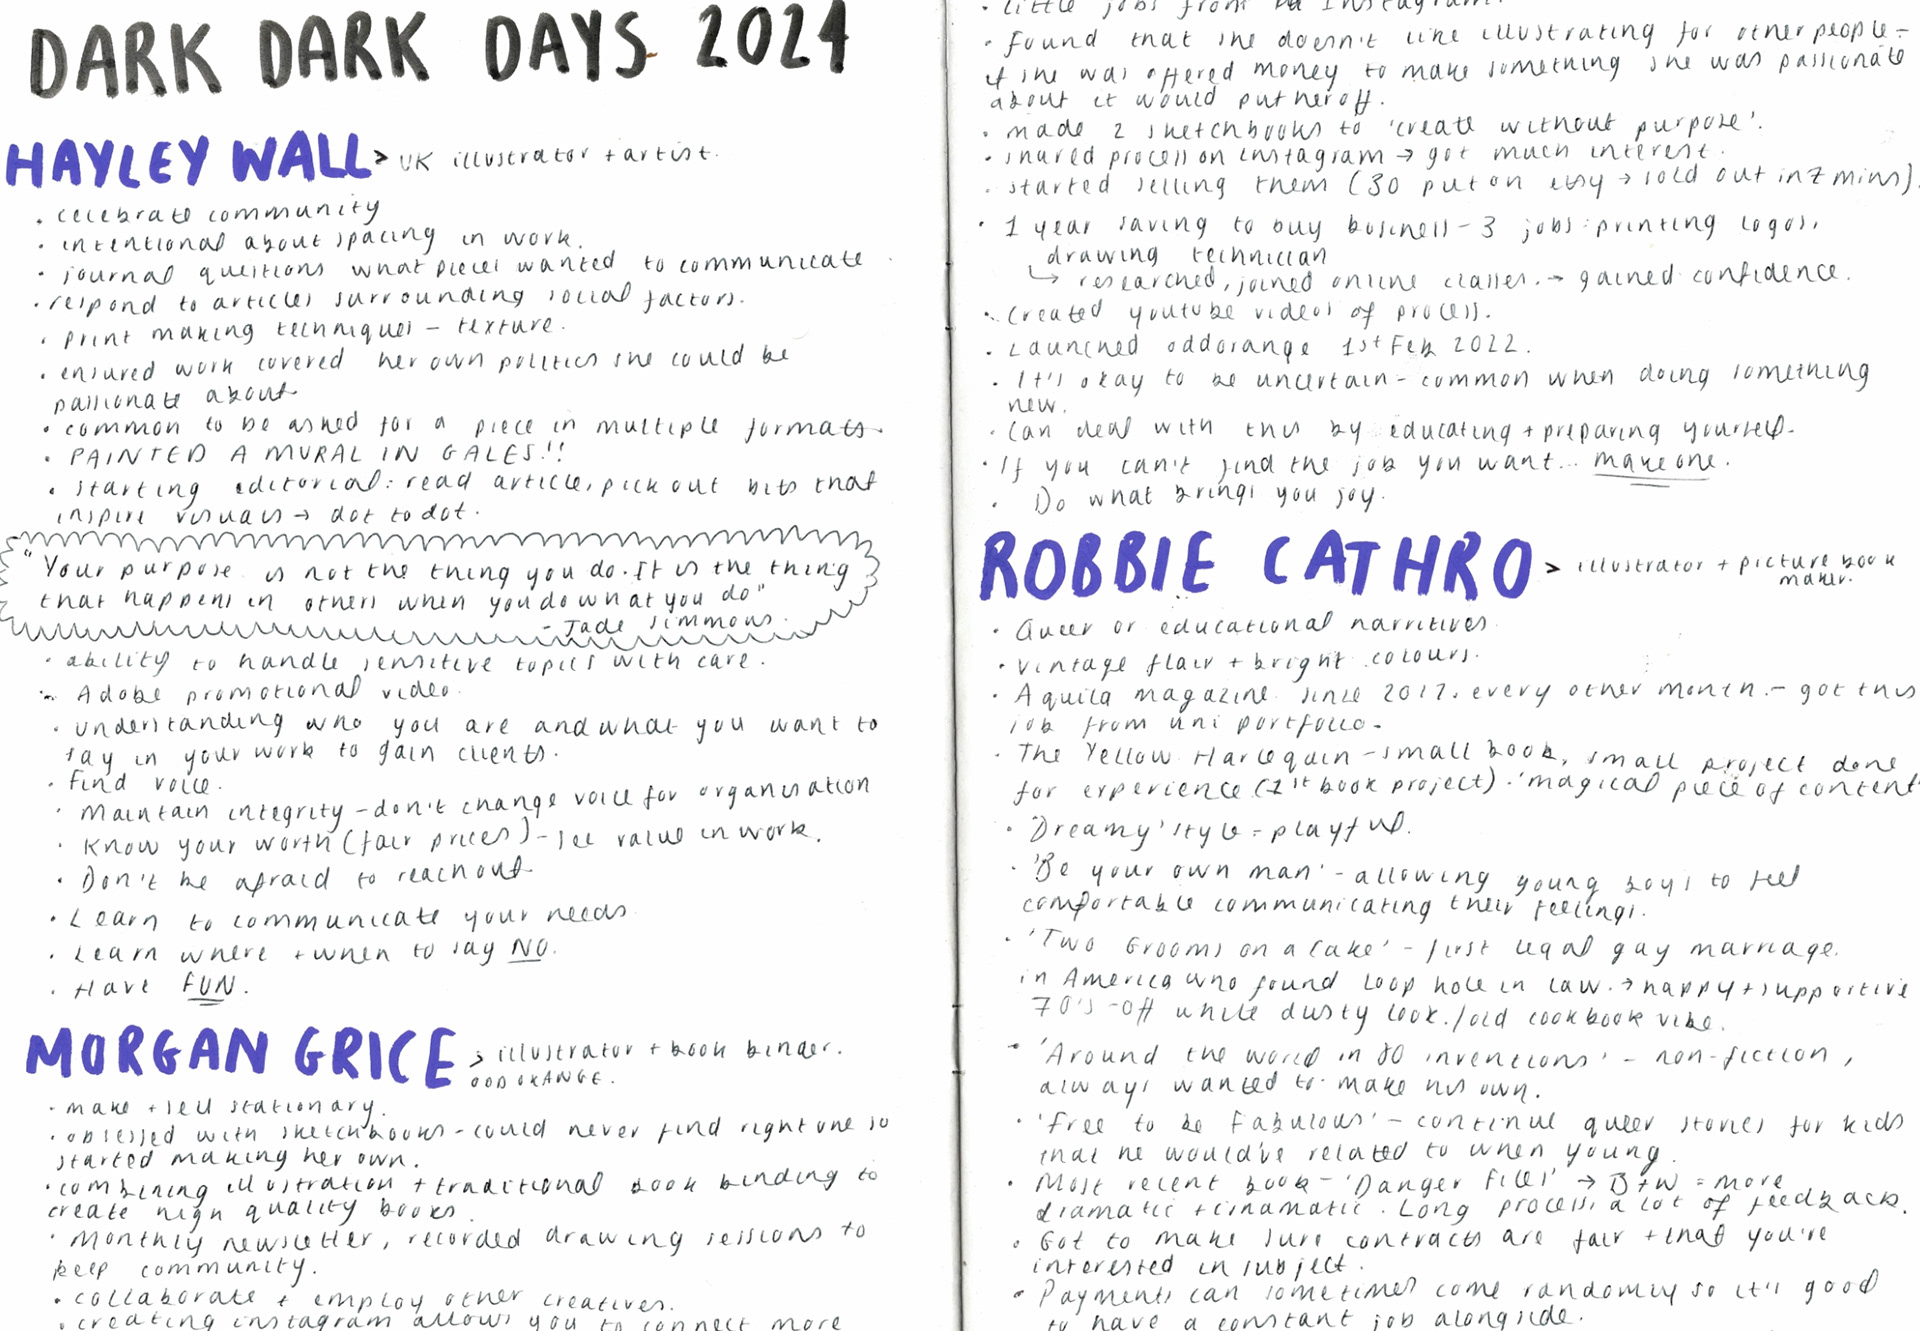 DARK DARK DAYS 2024
HAYLEY WALL > UK illustrator + artist.
• celebrate community
• intentional about spacing in work.
• journal questions what pieces wanted to communicate
• respond to articles surrounding social factors.
• print making techniques – texture.
• ensured work covered her own politics she could be
passionate about
• common to be asked for a piece in multiple formats.
• PAINTED A MURAL IN GALES!!
• starting editorial: read article, pick out bits that
inspire visuals → dot to dot.
"Your purpose is not the thing you do. It is the thing
that happens in others when you do what you do"
- Jade Simmons.
• ability to handle sensitive topics with care.
• Adobe promotional video.
• understanding who you are and what you want to
say in your work to gain clients.
• Find voice.
• Maintain integrity – don't change voice for organisation
• Know your worth (fair prices) – see value in work.
• Don't be afraid to reach out
• Learn to communicate your needs
• Learn where + when to say NO.
• Have FUN.
MORGAN GRICE > illustrator + book binder.
ODD ORANGE.
• make + sell stationary.
• obsessed with sketchbooks – could never find right one so
started making her own.
• combining illustration + traditional book binding to
create high quality books.
• Monthly newsletter, recorded drawing sessions to
keep community.
• collaborate + employ other creatives.
• creating instagram allows you to connect more
• little jobs from Instagram.
• Found that she doesn't like illustrating for other people –
if she was offered money to make something she was passionate
about it would put her off.
• made 2 sketchbooks to 'create without purpose'.
• shared process on instagram → got much interest.
• started selling them (30 put on etsy → sold out in 7 mins).
• 1 year saving to buy business – 3 jobs: printing logos,
drawing technician
↳ researched, joined online classes. → gained confidence.
• Created youtube videos of process.
• Launched oddorange 1st Feb 2022.
• It's okay to be uncertain – common when doing something
new.
• Can deal with this by educating + preparing yourself.
• If you can't find the job you want... make one.
• Do what brings you joy.
ROBBIE CATHRO > illustrator + picture book
maker.
• Queer or educational narritives
• Vintage flair + bright colours.
• Aquila magazine since 2017, every other month. – got this
job from uni portfolio.
• The Yellow Harlequin – small book, small project done
for experience (1st book project). 'magical piece of content'
• 'Dreamy' style = playful.
• 'Be your own man' – allowing young boys to feel
comfortable communicating their feelings.
• 'Two Grooms on a Cake' – first legal gay marriage
in America who found loop hole in law. → happy + supportive
70's – off white dusty look. / old cookbook vibe.
• 'Around the world in 80 inventions' – non-fiction,
always wanted to make his own.
• 'Free to be Fabulous' – continue queer stories for kids
that he would've related to when young.
• Most recent book – 'Danger Files' → B+W = more
dramatic + cinamatic. Long process, a lot of feedback.
• Got to make sure contracts are fair + that you're
interested in subject.
• Payments can sometimes come randomly so it's good
to have a constant job alongside.